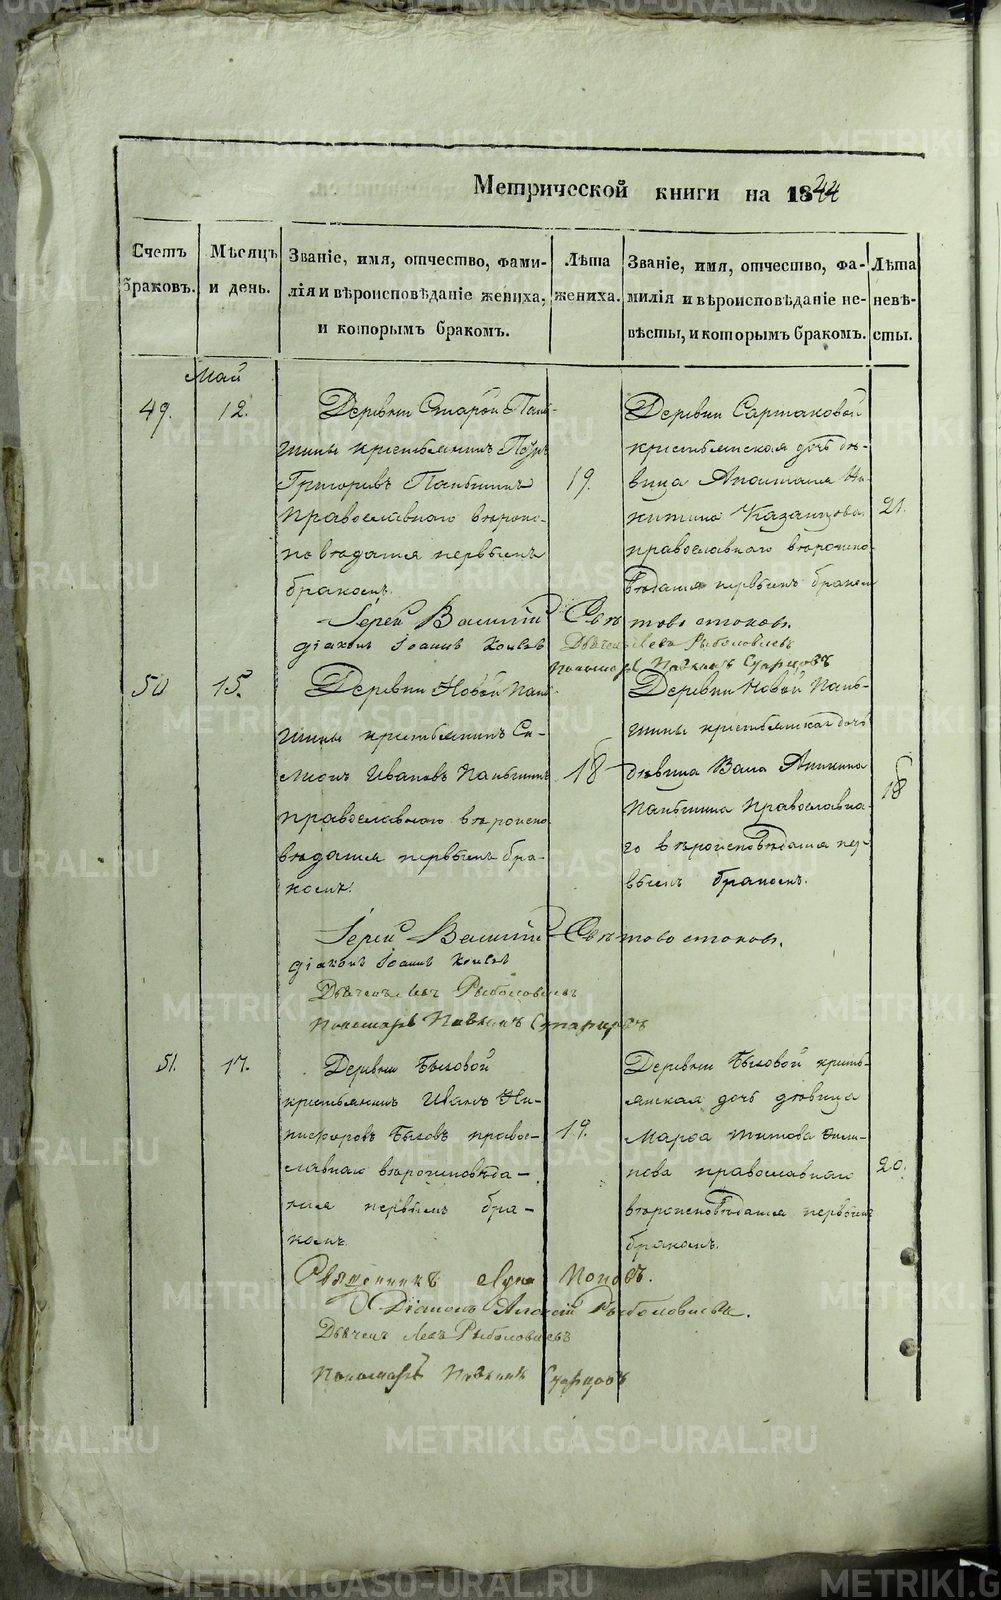 Метрической книги на 1844
Счетъ браковъ.
Мѣсяцъ и день.
Званіе, имя, отчество, фами-
лія и вѣроисповѣданіе жениха,
и которымъ бракомъ.
Лѣта
жениха.
Званіе, имя, отчество, фа-
милія и вѣроисповѣданіе не-
вѣсты, и которымъ бракомъ.
Лѣта
невѣ-
сты.
Май
49.
12.
Деревни Старой Пань-
шины крестьянинъ
Григорьевъ Паньшинъ
православнаго вѣроис-
повѣдания первымъ
бракомъ.
19.
Деревни Сартаковой
крестьянская дочь дѣ-
вица Анастасия Ни-
китина Казанцова
православнаго вѣроиспо-
вѣдания первымъ бракомъ
21.
Іерей Василій Свѣтовостоковъ.
діаконъ Іоаннъ
Дьячекъ Левъ Рыболовлевъ
Пономарь Старцовъ
50
15.
Деревни Новой Пань-
шины крестьянинъ Си-
меонъ Ивановъ Паньшинъ
православнаго вѣроиспо
вѣдания первымъ бра-
комъ.
18
Деревни Новой Пань-
шины крестьянская дочь
дѣвица Васа
Паньшина православна-
го вѣроисповѣдания пер-
вымъ бракомъ.
18
Іерей Василій Свѣтовостоковъ.
діаконъ Іоаннъ
Дьячекъ Левъ Рыболовлевъ
Пономарь Старцовъ
51.
17.
Деревни Быковой
крестьянинъ Иванъ Ни-
кифоровъ Быковъ право-
славнаго вѣроисповѣда-
ния первымъ бра-
комъ.
19.
Деревни Быковой кресть-
янская дочь дѣвица
Марѳа Титова
православнаго
вѣроисповѣдания первымъ
бракомъ.
20.
Священникъ Лука Поповъ.
Діаконъ Алексій Рыболовлевъ.
Дьячекъ Левъ Рыболовлевъ
Пономарь Старцовъ
METRIKI.GASO-URAL.RU